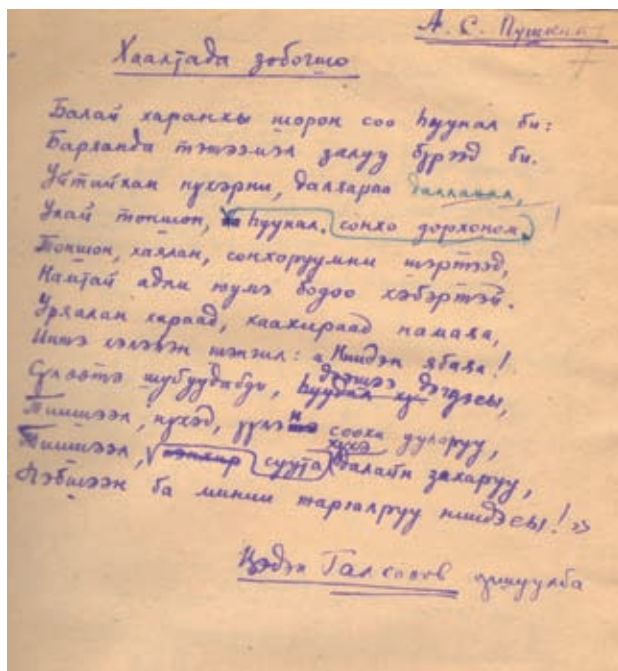 А. С. Пушкин
Хаалтада зобогшо
Балай харанхы шорон соо һуунал би:
Барланда тэжээмэл залуу бүргэд би.
Уйтайхан нүхэрни, далхараа даллалал,
Улай тоншон, һуунал, сонхо дорхоном.
Тоншон, хаялан, сонхоруумни шэртээд,
Намтай адли юумэ бодоо хэбэртэй.
Уряалан хараад, хаахираад намала,
Иигэ хэлэхэн шэнгил: "Ниидэн ябала!
Сүлөөтэ шубуудабди, дээшээ дэгдэеы,
Тиишээл, нүхэд, үүлэн соохи ууларуу,
Тиишээл, сууута хүхэ далайн захаруу,
Һэбшээн ба минии тарялруу ниидэеы!"
Цэдэн Галсанов оршуулба